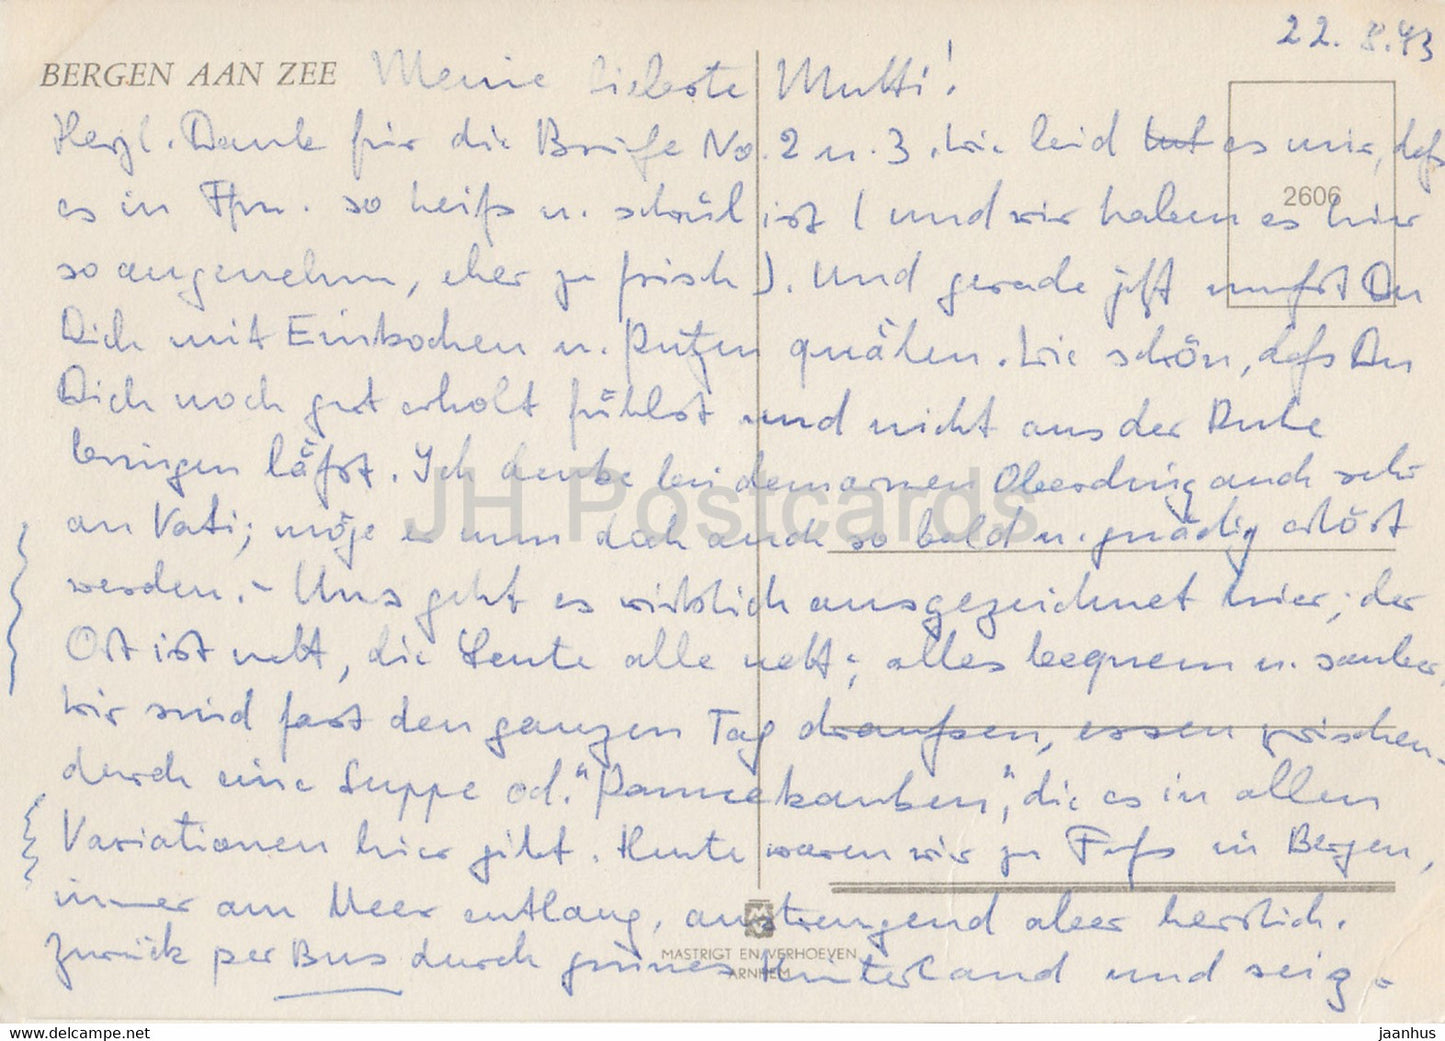 22. 8. 73
BERGEN AAN ZEE Meine liebste Mutti!
Herzl. Dank für die Briefe No. 2 u. 3. Wie leid tut es mir, daß
2606
es in Ffm. so heiß u. schwül ist (und wir haben es hier
so angenehm, eher zu frisch). Und gerade jetzt mußt Du
Dich mit Einkochen u. Putzen quälen. Wie schön, daß Du
Dich noch gut erholt fühlst und nicht aus der Ruhe
bringen läßt. Ich denke bei dem armen auch sehr
an Vati; möge er nun doch auch so bald u. gnädig erlöst
werden. – Uns geht es wirklich ausgezeichnet hier; der
Ort ist nett, die Leute alle nett; alles bequem u. sauber,
wir sind fast den ganzen Tag draußen, essen zwischen-
durch eine Suppe od. "Pannekauken", die es in allen
Variationen hier gibt. Heute waren wir zu Fuß in Bergen,
immer am Meer entlang, anstrengend aber herrlich.
Zurück per Bus durch grünes Hinterland und
MASTRIGT EN VERHOEVEN
ARNHEM
JH Postcards
www.delcampe.net
jaanhus